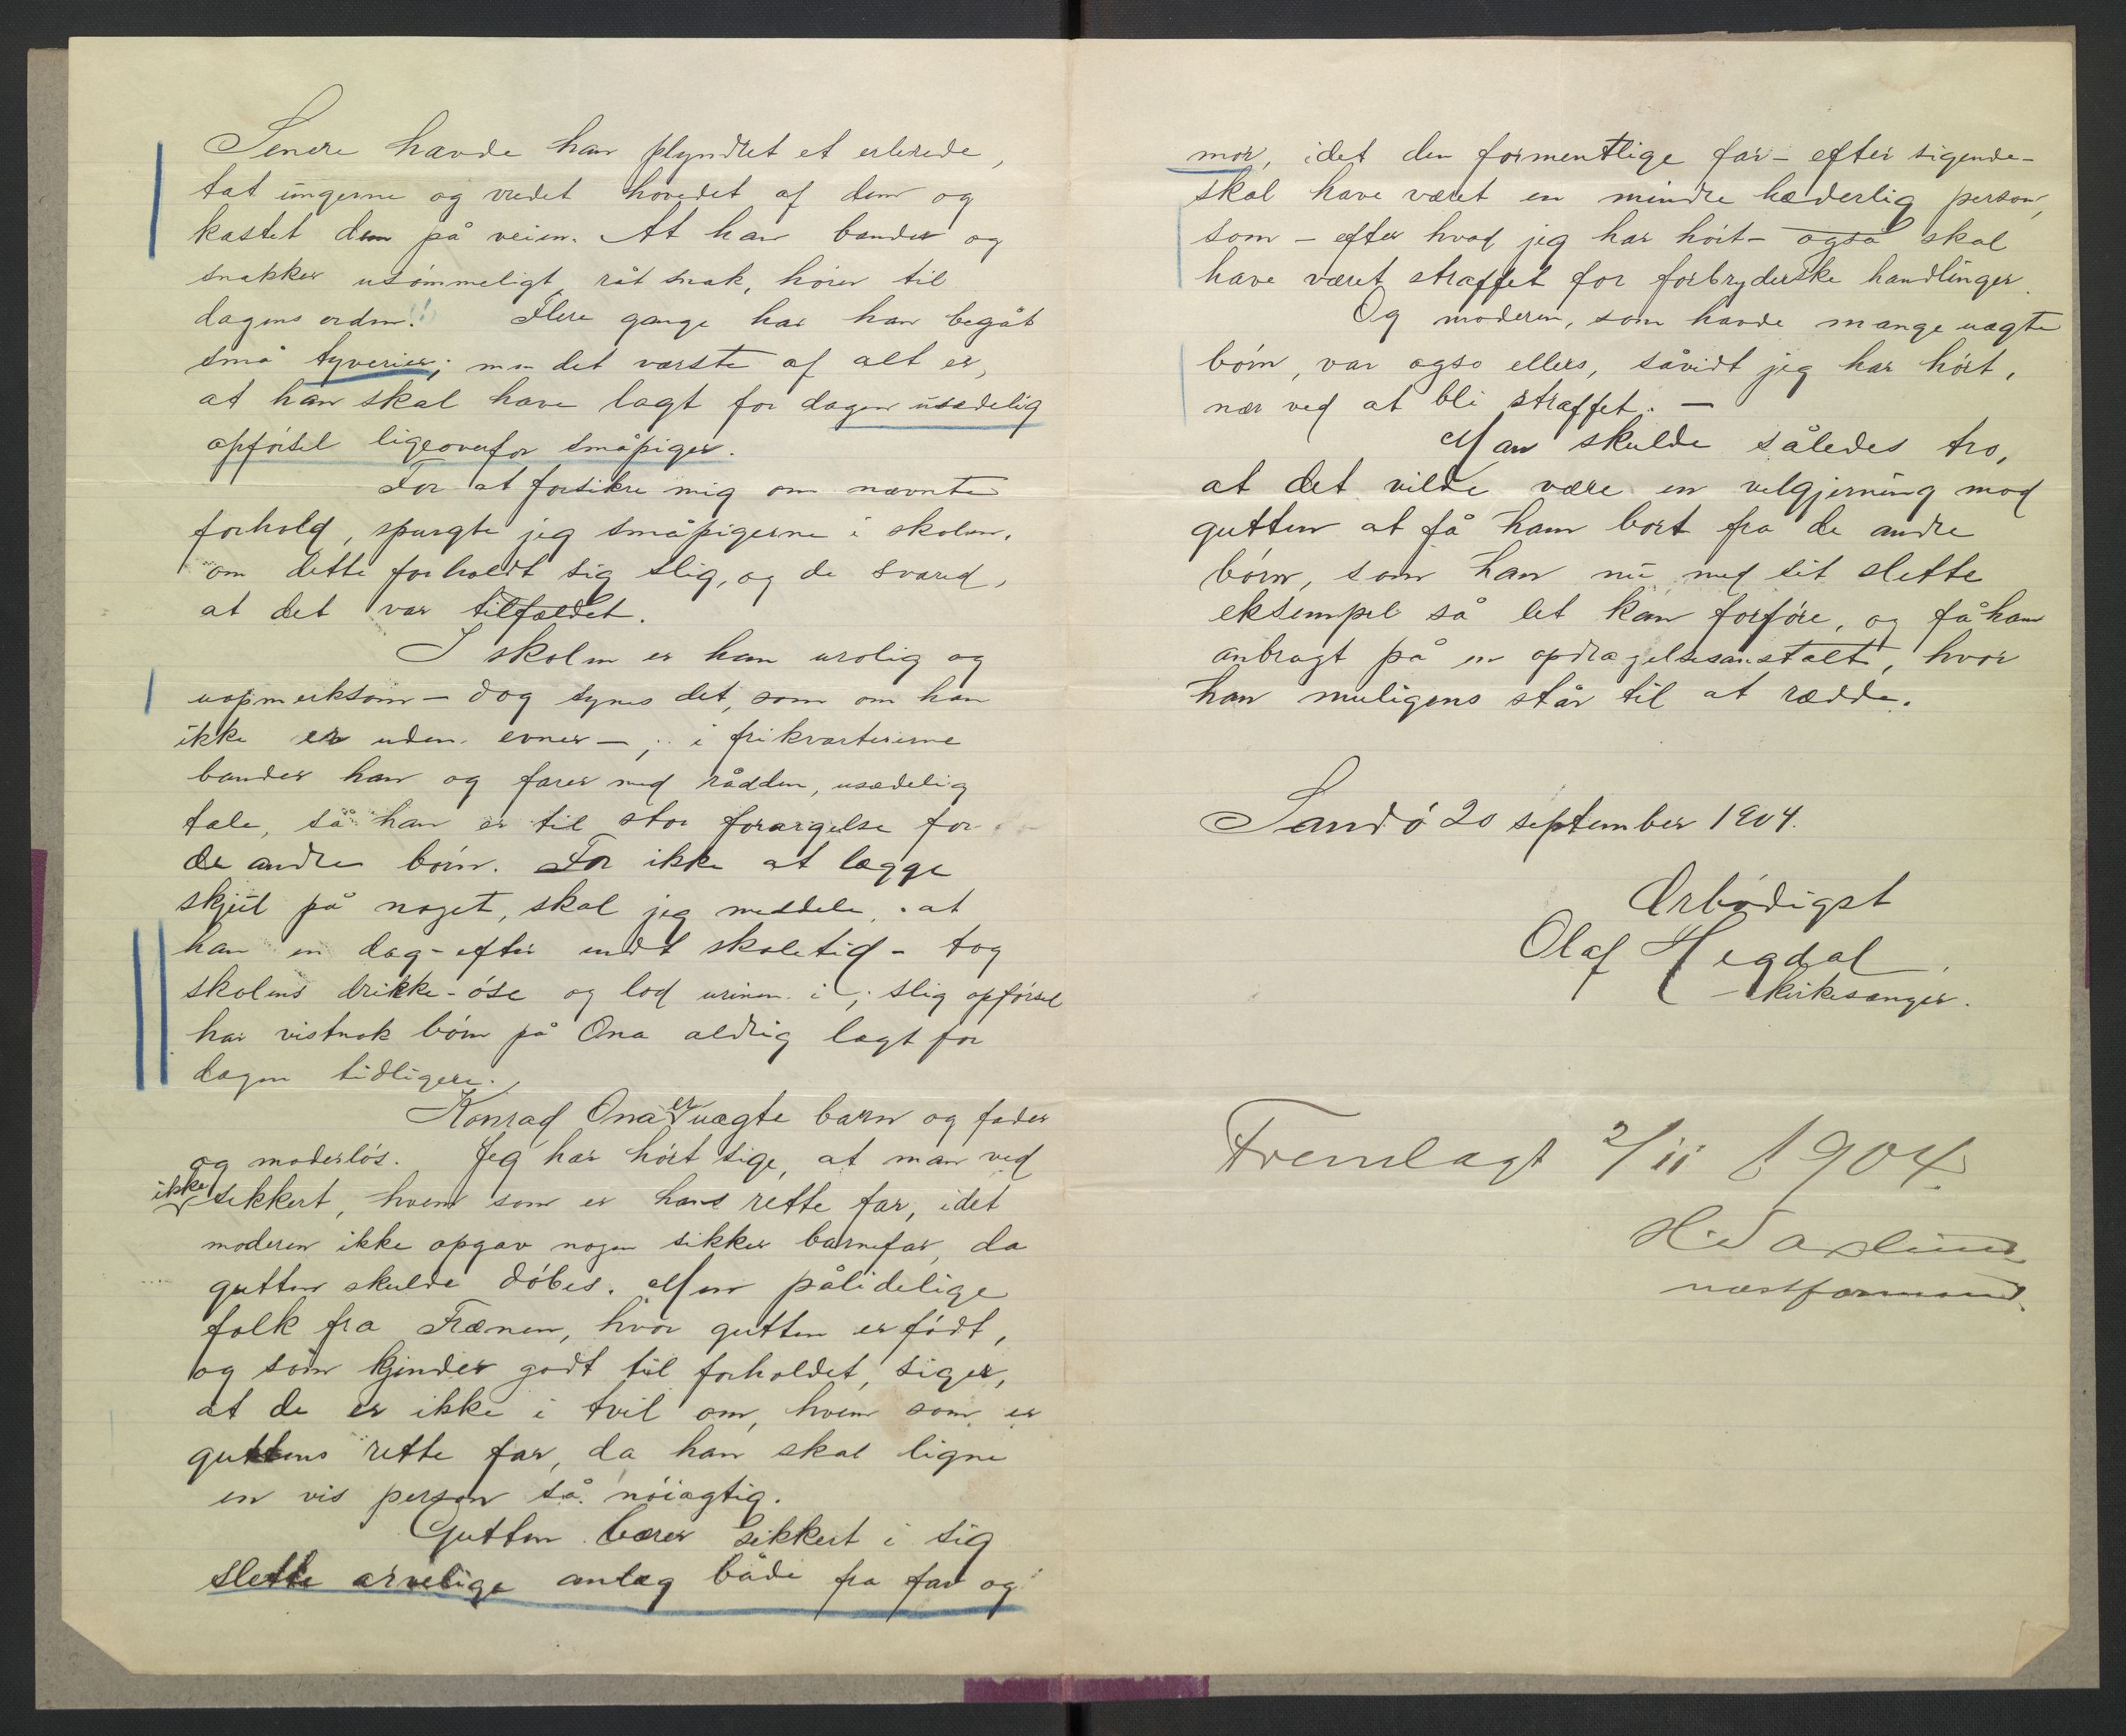 Senere havde han plyndret et erlerede,
tat ungerne og vredet hovedet af dem og
kastet dem på veien. At han bander og
snakker usømmeligt, råt snak, hører til
dagens orden!! Flere gange har han begåt
små tyverier; men det værste af alt er,
at han skal have lagt for dagen usædelig
opførsel ligeoverfor småpiger.
For at forsikre mig om nævnte
forhold, spurgte jeg småpigerne i skolen,
om dette forholdt sig slig, og de svared,
at det var tilfældet.
I skolen er han urolig og
uopmerksom – dog synes det, som om han
ikke er uden evner –; i frikvartererne
bander han og farer med rådden, usædelig
tale, så han er til stor forargelse for
de andre børn. For ikke at lægge
skjul på noget, skal jeg meddele, at
han en dag – efter endt skoletid – tog
skolens drikke-øse og lod urinen i; slig opførsel
har vistnok børn på Ona aldrig lagt for
dagen tidligere.
Konrad Ona er uægte barn og fader
og moderløs. Jeg har hørt sige, at man ved
ikke sikkert, hvem som er hans rette far, idet
moderen ikke opgav nogen sikker barnefar, da
gutten skulde døbes. Men pålidelige
folk fra Frænen, hvor gutten er født,
og som kjender godt til forholdet, siger,
at de er ikke i tvil om, hvem som er
guttens rette far, da han skal ligne
en vis person så nøiagtig.
Gutten bærer sikkert i sig
slette arvelige anlæg både fra far og
mor, idet den formentlige far – efter sigende –
skal have været en mindre hæderlig person,
som – efter hvad jeg har hørt – også skal
have været straffet for forbryderske handlinger.
Og moderen, som havde mange uægte
børn, var også ellers, såvidt jeg har hørt,
nær ved at bli straffet. –
Man skulde således tro,
at det vilde være en velgjerning mod
gutten at få ham bort fra de andre
børn, som han nu med sit slette
eksempel så let kan forføre, og få ham
anbragt på en opdragelsesanstalt, hvor
han muligens står til at rædde.
Sandø 20 september 1904.
Ærbødigst
Olaf Hegdal
kirkesanger.
Fremlagt 2/11 1904.
næstformand.